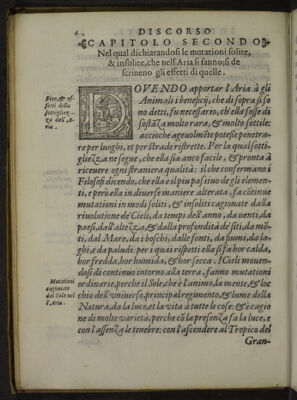 6
DISCORSO
CAPITOLO SECONDO
Nel qual dichiarandosi le mutationi solite,
& insolite, che nell'Aria si fanno; si de
scriueno gli effetti di quelle.
DOVENDO apportar l'Aria à gli
Animali i beneficij, che di sopra si so
no detti, fu necessario, ch'ella fosse di
sostāza molto rara, & molto sottile:
accioche ageuolmēte potesse penetra-
re per luoghi, et per strade ristrette. Per la qual sotti-
gliezza ne segue, che ella sia anco facile, & pronta à
riceuere ogni straniera qualità: il che confermano i
Filosofi dicendo, che ella è il piu passiuo de gli elemen-
ti, e però ella in diuerse maniere alterata, fa cōtinue
mutationi in modi soliti, & insoliti cagionate dalla
riuolutione de' Cieli, da tempi dell'anno, da uenti, da
paesi, dall'altezza, & dalla profondità de' siti, da mō-
ti, dal Mare, da i boschi, dalle fonti, da fiumi, da la-
ghi, e da paludi: per i quai rispetti ella si fa hor calda,
hor fredda, hor humida, & hor secca. I Cieli mouen-
dosi di continuo intorno alla terra, fanno mutationi
ordinarie, perche il Sole, che è l'animo, la mente, & l'oc
chio dell'vniuerso, principal regimento, & lume della
Natura, da la luce, et la vita à tutte le cose: & è cagio
ne di molte varietà, perche cō la presenza fa la luce, e
con l'assenza le tenebre: con l'ascendere al Tropico del
Gran-
Fine, & ef-
fetti della
sottigliez-
za dell'A-
ria.
Mutationi
cagionate
dal Sole nel
l'Aria.